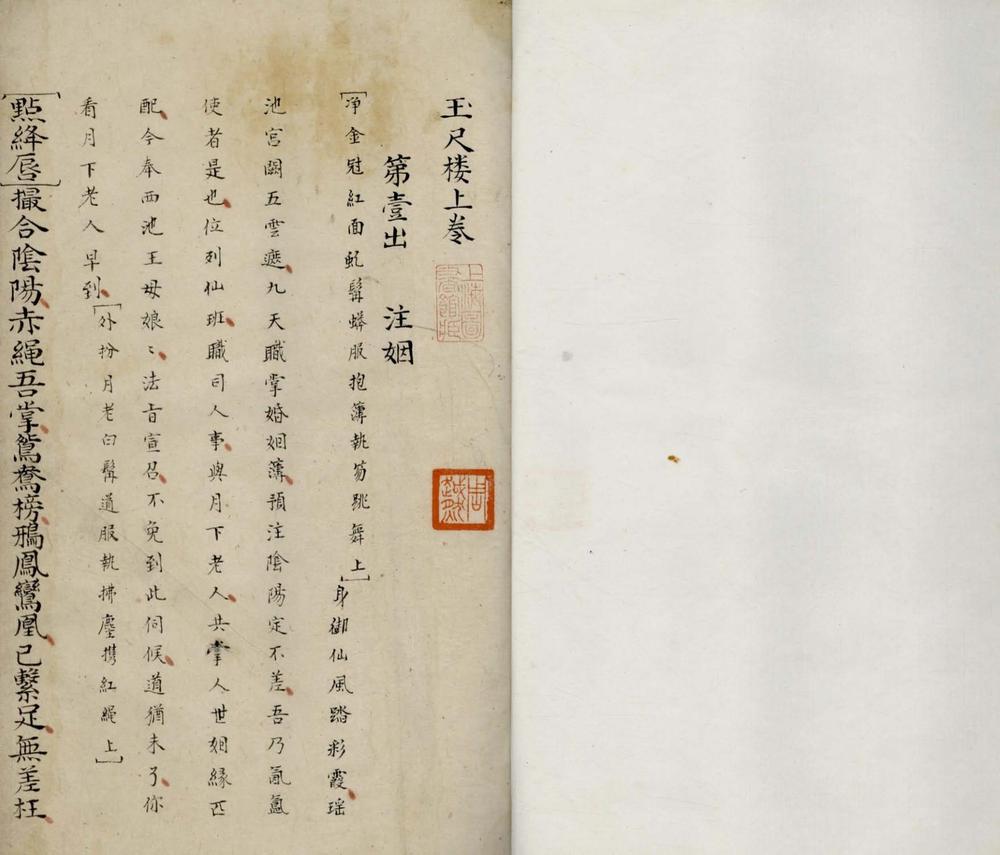 玉尺楼上卷
第壹出　注姻
[净金冠紅面虬髯蟒服抱簿執笏跳舞上]身御仙風踏彩霞瑶
池宮闕五雲遮九天職掌婚姻薄預注陰陽定不差吾乃氤氳
使者是也位列仙班職司人事與月下老人共掌人世姻緣匹
配今奉西池王母娘〻法旨宣召不免到此伺候道猶未了你
看月下老人早到[外扮月老白髯道服執拂塵携紅繩上]
[點絳唇]撮合陰陽赤繩吾掌鴛鴦榜鴉鳳鸞凰已繫足無差枉
上海圖書館藏